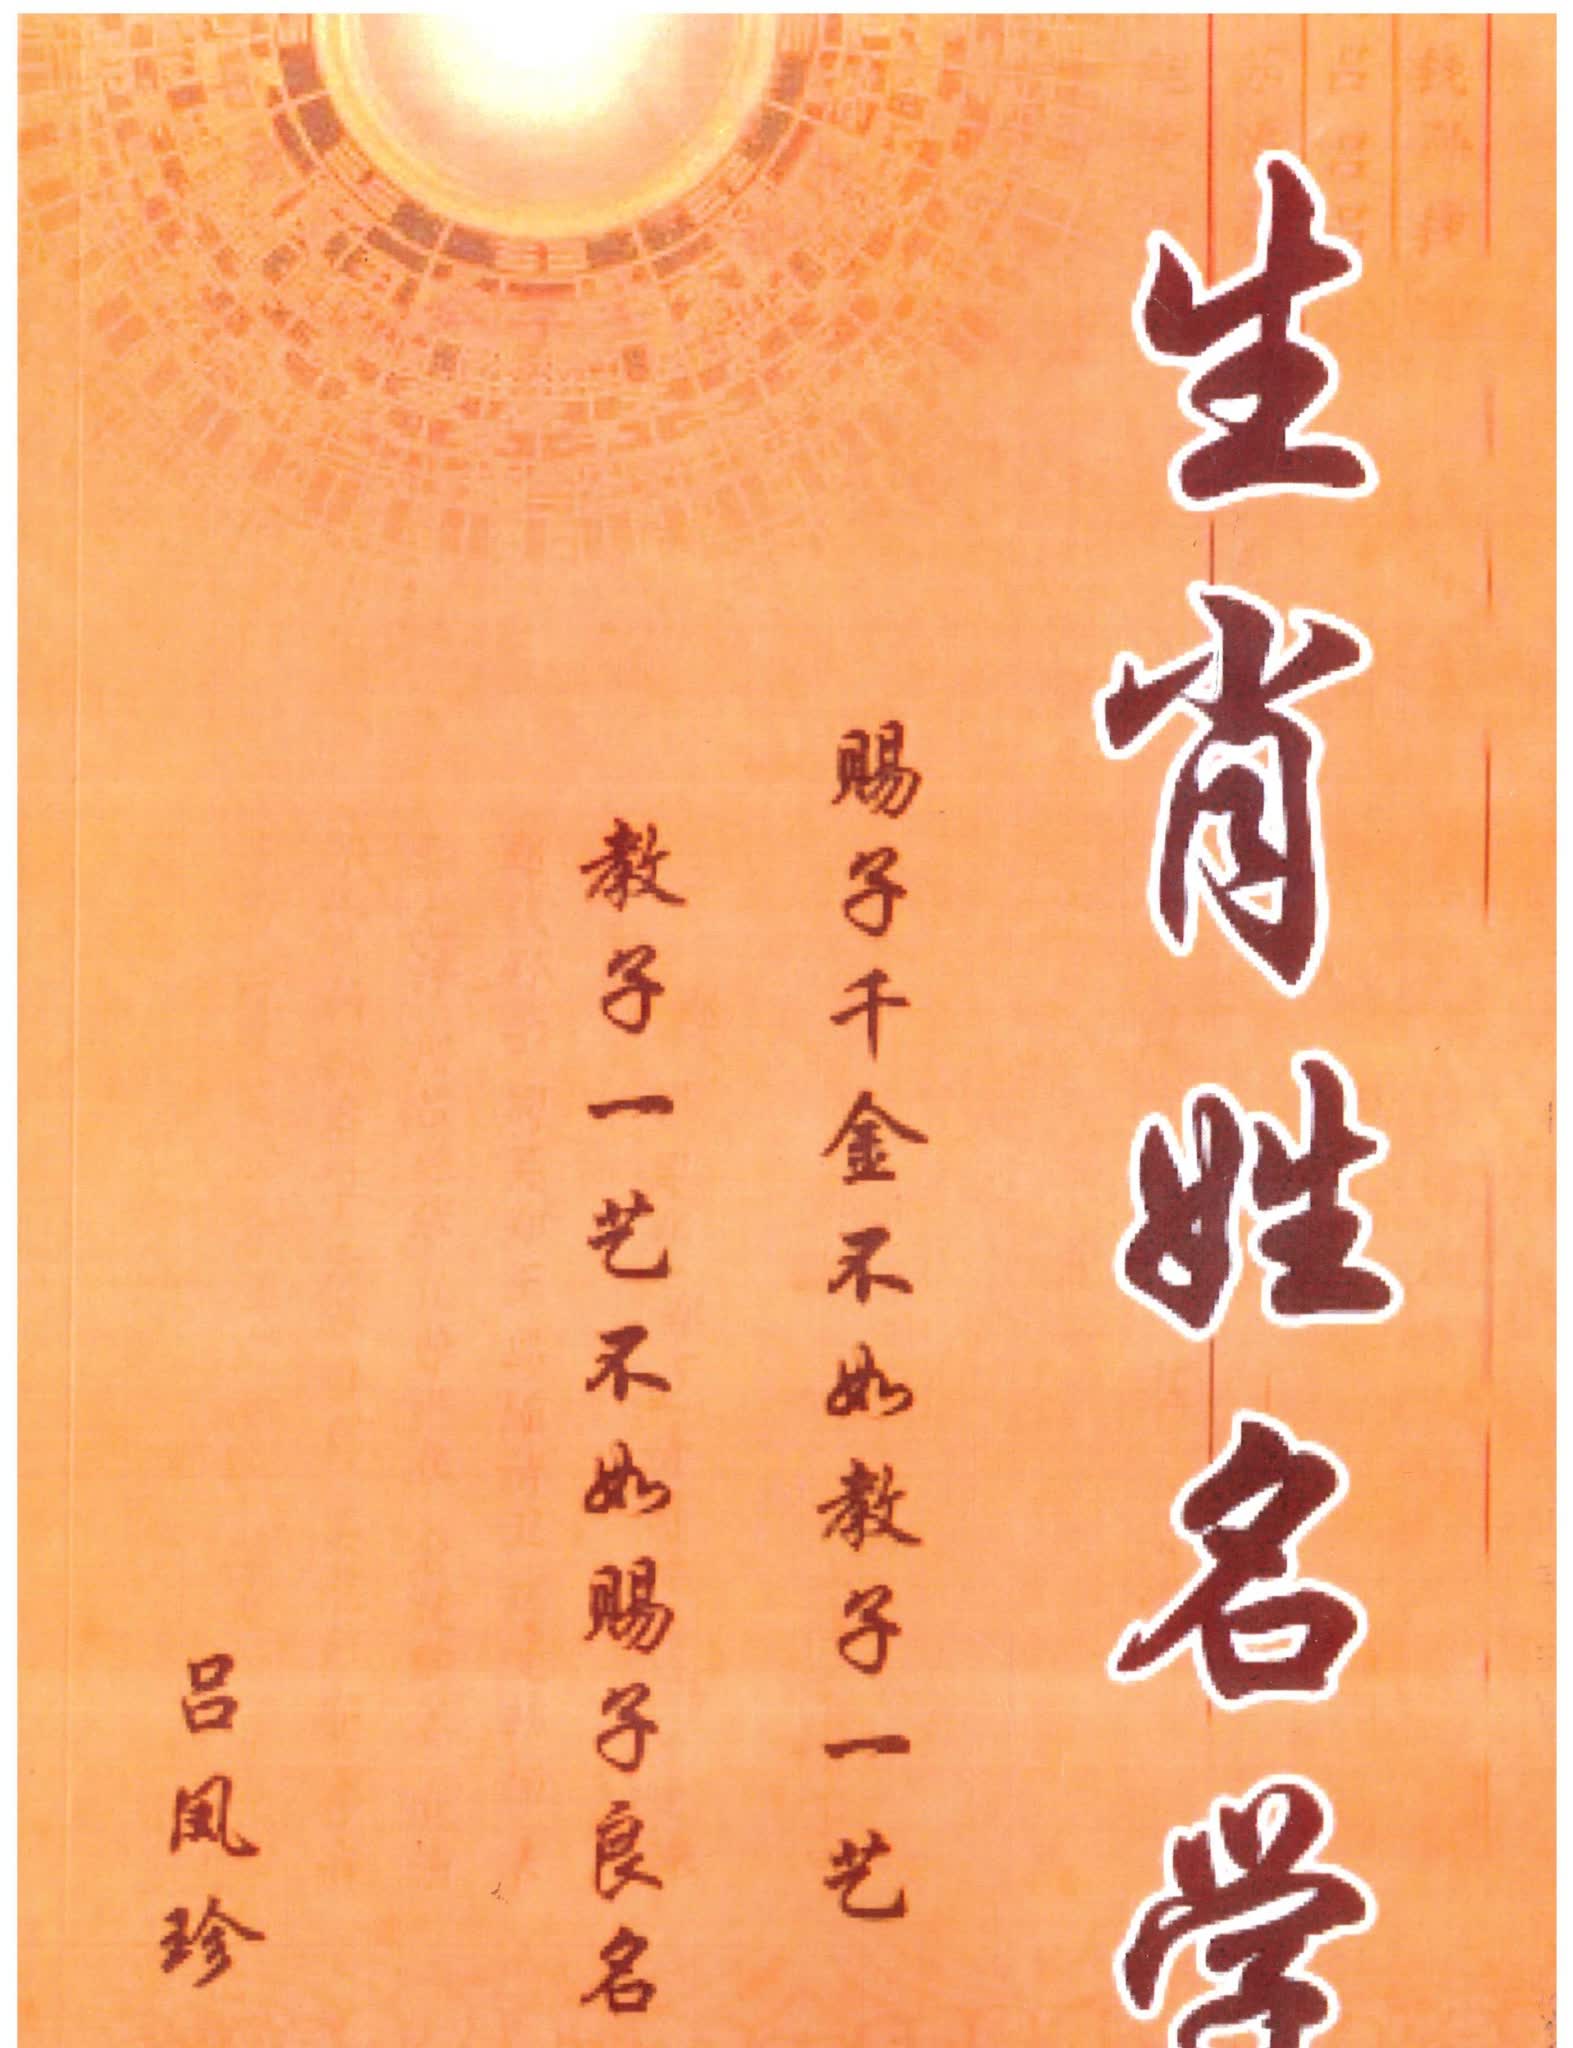 生肖姓名学
赐子千金不如教子一艺
教子一艺不如赐子良名
吕凤珍